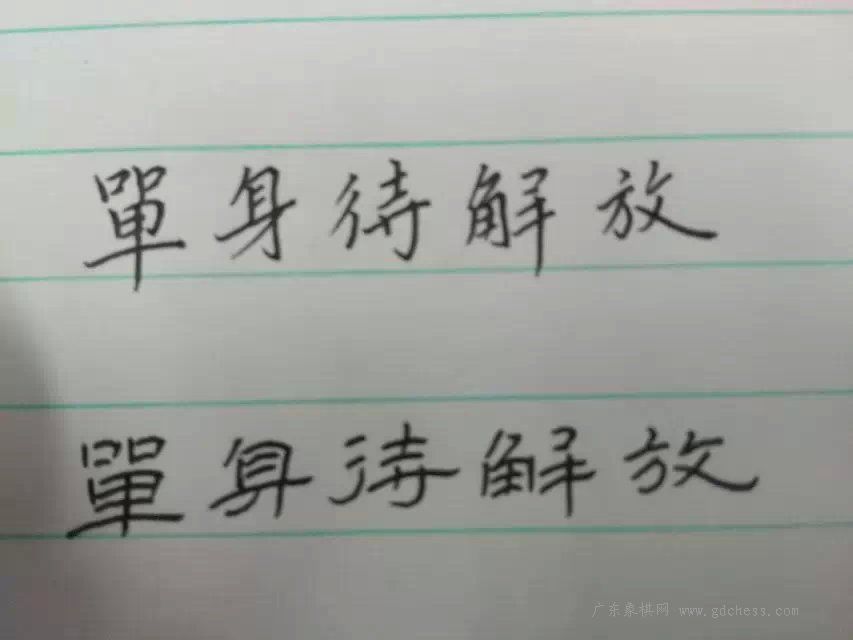 單身待解放
單身待解放
广东象棋网 www.gdchess.com